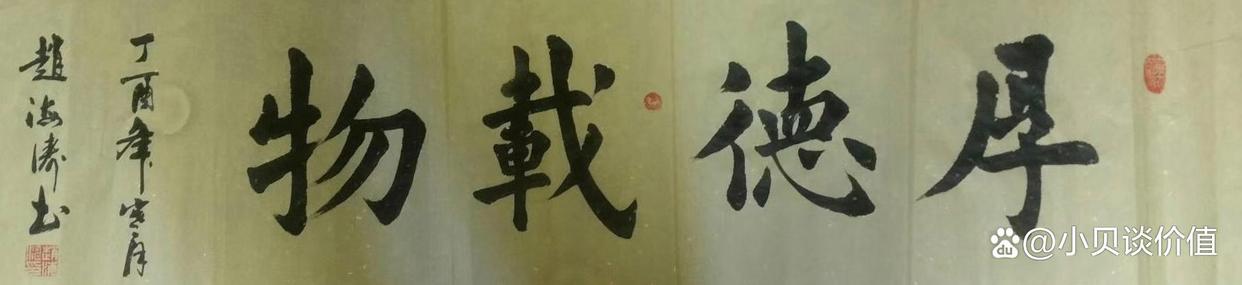 厚德載物
丁酉年寒月
趙海濤书
du
@小贝谈价值